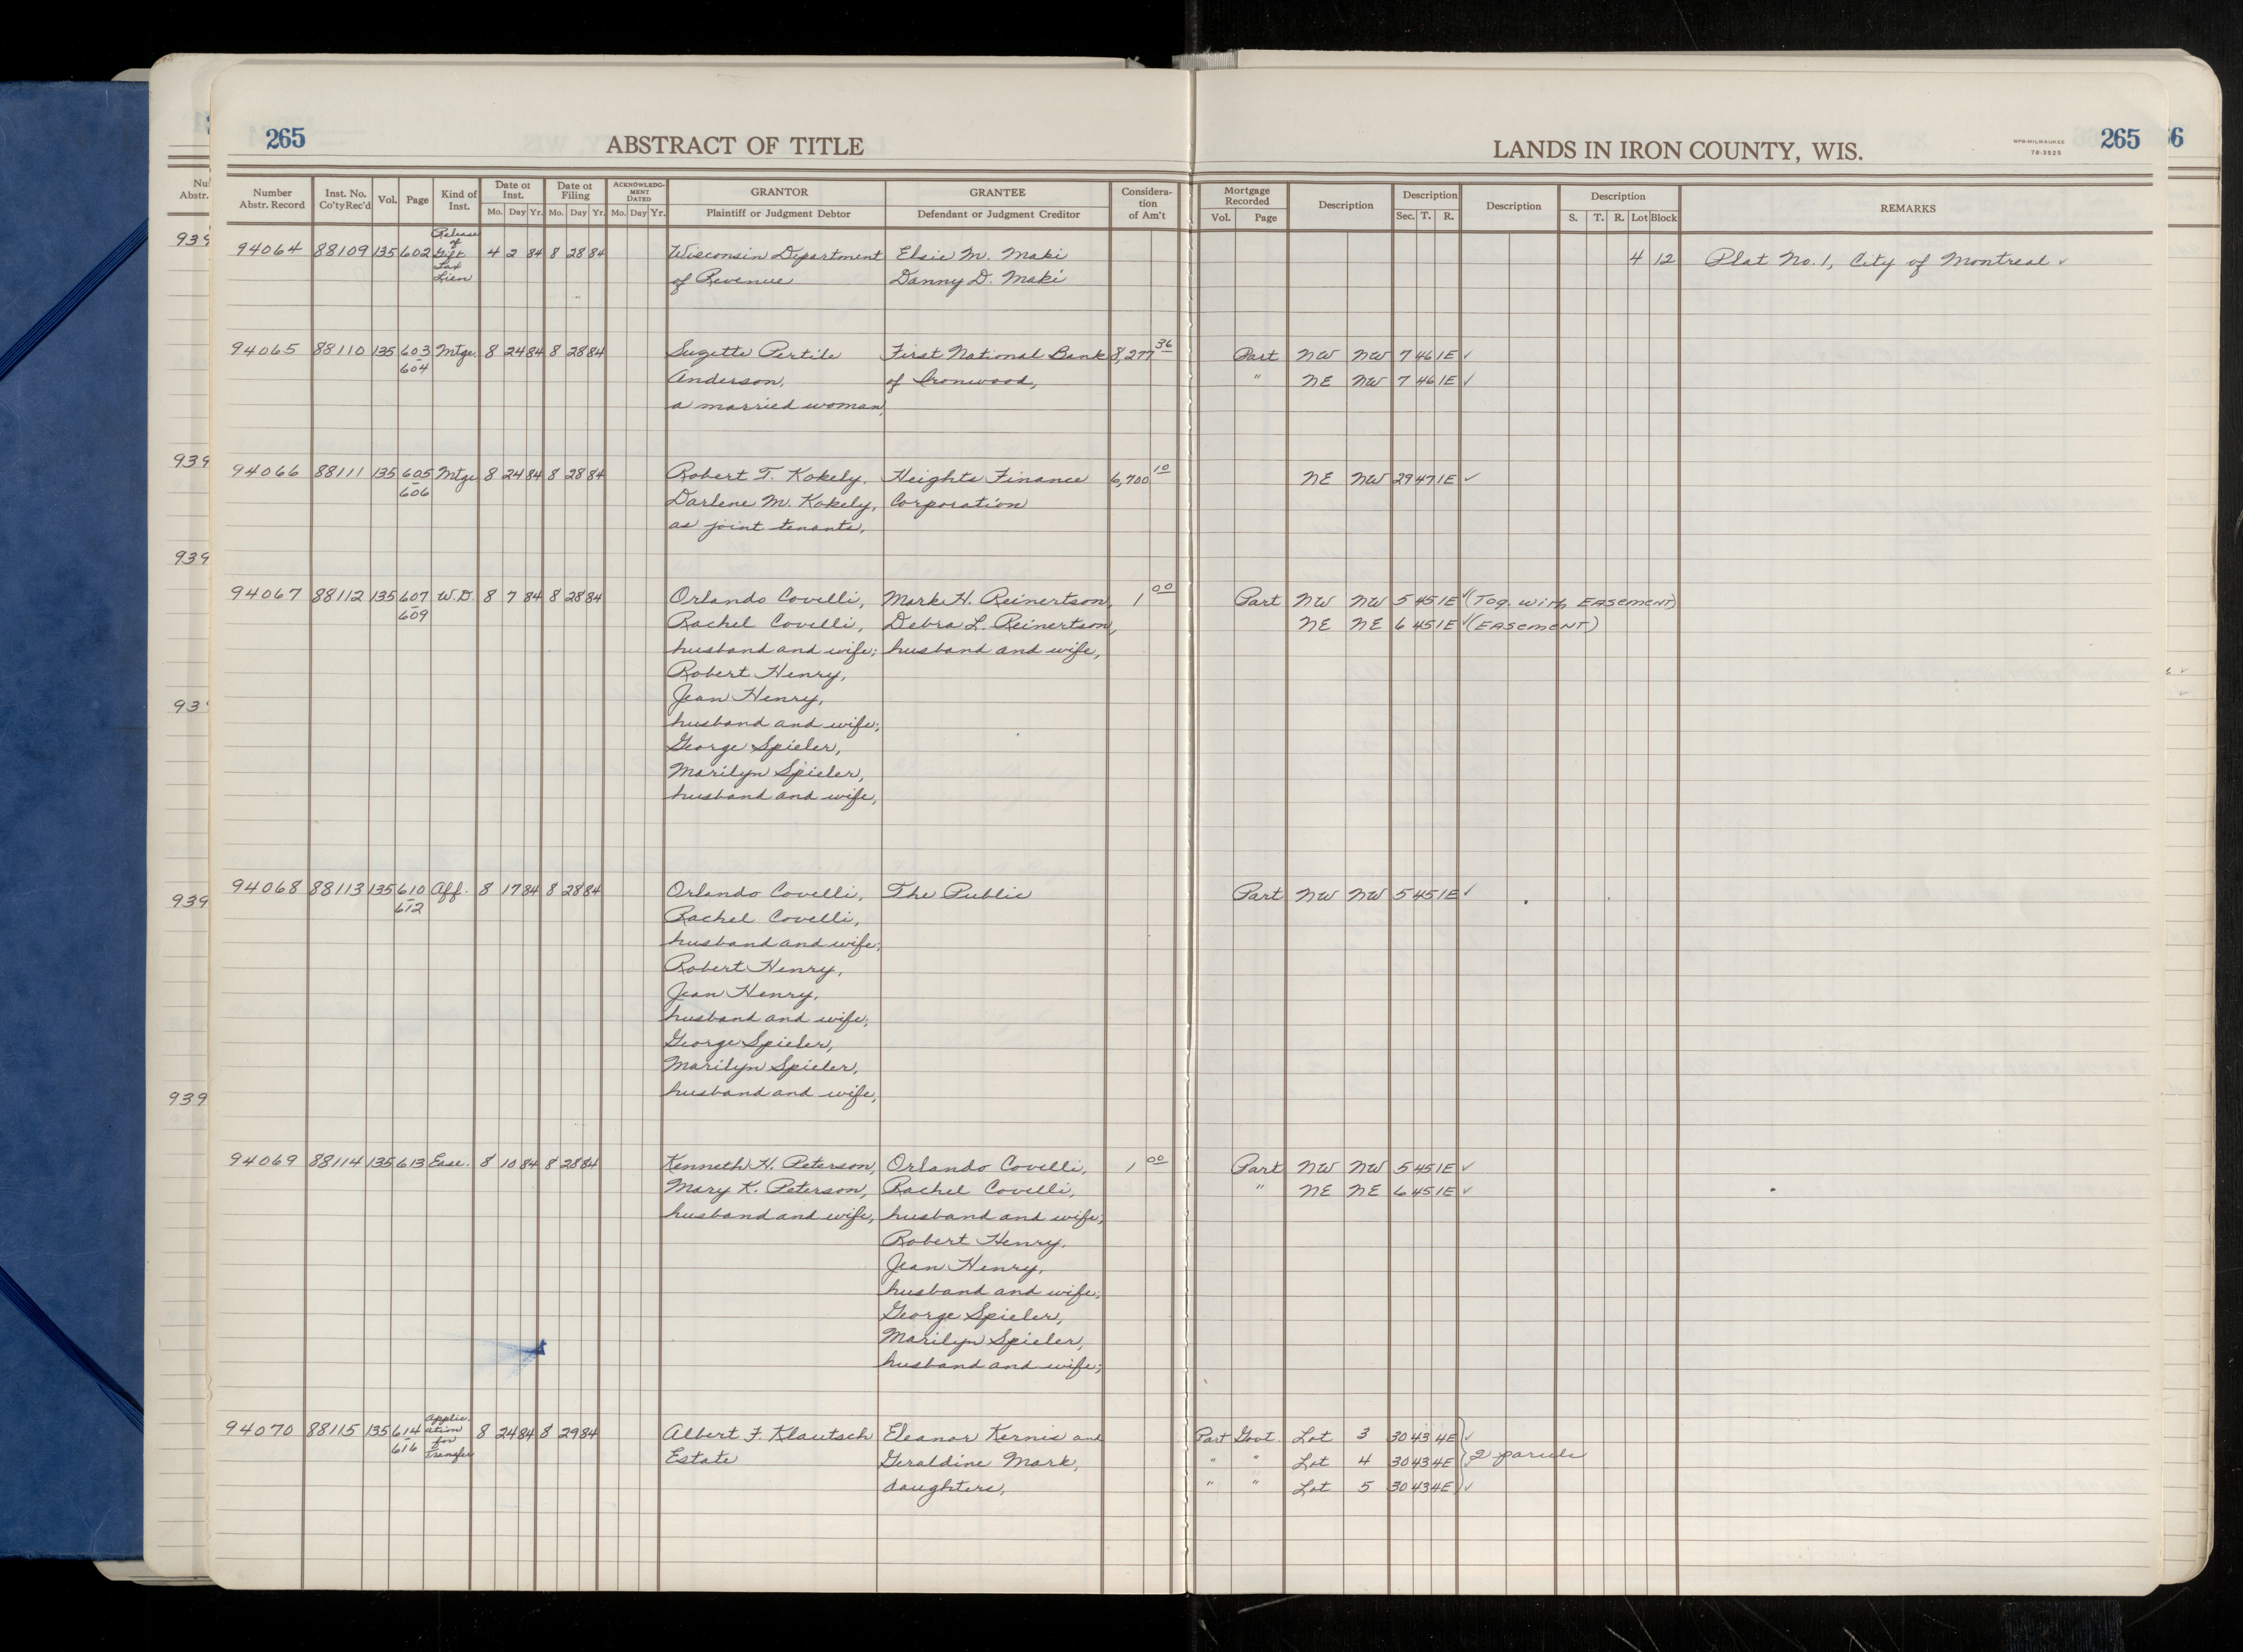 265
ABSTRACT OF TITLE
LANDS IN IRON COUNTY, WIS.
NPB-MILWAUKEE
78-3525
265
Number Abstr. Record
Inst. No. Co'ty Rec'd
Vol.
Page
Kind of Inst.
Date of Inst.
Mo. Day Yr.
Date of Filing
Mo. Day Yr.
ACKNOWLEDGMENT DATED
Mo. Day Yr.
GRANTOR
Plaintiff or Judgment Debtor
GRANTEE
Defendant or Judgment Creditor
Considera-tion of Am't
Mortgage Recorded
Vol. Page
Description
Description
Sec. T. R.
Description
Description
S. T. R. Lot Block
REMARKS
94064 88109 135 602 Release of Gift Tax Lien 4 2 84 8 28 84 Wisconsin Department Elsie M. Maki 4 12 Plat No. 1, City of Montreal ✓
of Revenue Danny D. Maki
94065 88110 135 603-604 Mtge. 8 24 84 8 28 84 Suzette Pertile First National Bank 8,277 36 Part NW NW 7 46 1E ✓
Anderson, of Ironwood, " NE NW 7 46 1E ✓
a married woman,
94066 88111 135 605-606 Mtge 8 24 84 8 28 84 Robert T. Kokely, Heights Finance 6,700 10 NE NW 29 47 1E ✓
Darlene M. Kokely, Corporation
as joint tenants,
94067 88112 135 607-609 W.D. 8 7 84 8 28 84 Orlando Covelli, Mark H. Reinertson, 1 00 Part NW NW 5 45 1E ✓ (Tog. with EASEMENT)
Rachel Covelli, Debra L. Reinertson, NE NE 6 45 1E ✓ (EASEMENT)
husband and wife; husband and wife,
Robert Henry,
Jean Henry,
husband and wife;
George Spieler,
Marilyn Spieler,
husband and wife,
94068 88113 135 610-612 Aff. 8 17 84 8 28 84 Orlando Covelli, The Public Part NW NW 5 45 1E ✓
Rachel Covelli,
husband and wife;
Robert Henry,
Jean Henry,
husband and wife;
George Spieler,
Marilyn Spieler,
husband and wife,
94069 88114 135 613 Ease. 8 10 84 8 28 84 Kenneth H. Peterson, Orlando Covelli, 1 00 Part NW NW 5 45 1E ✓
Mary K. Peterson, Rachel Covelli, " NE NE 6 45 1E ✓
husband and wife, husband and wife;
Robert Henry,
Jean Henry,
husband and wife;
George Spieler,
Marilyn Spieler,
husband and wife;
94070 88115 135 614-616 Application for Transfer 8 24 84 8 29 84 Albert F. Klautsch Eleanor Kernis and Part Govt. Lot 3 30 43 4E ✓
Estate Geraldine Mark, " " Lot 4 30 43 4E 2 parcels
daughters, " " Lot 5 30 43 4E ✓